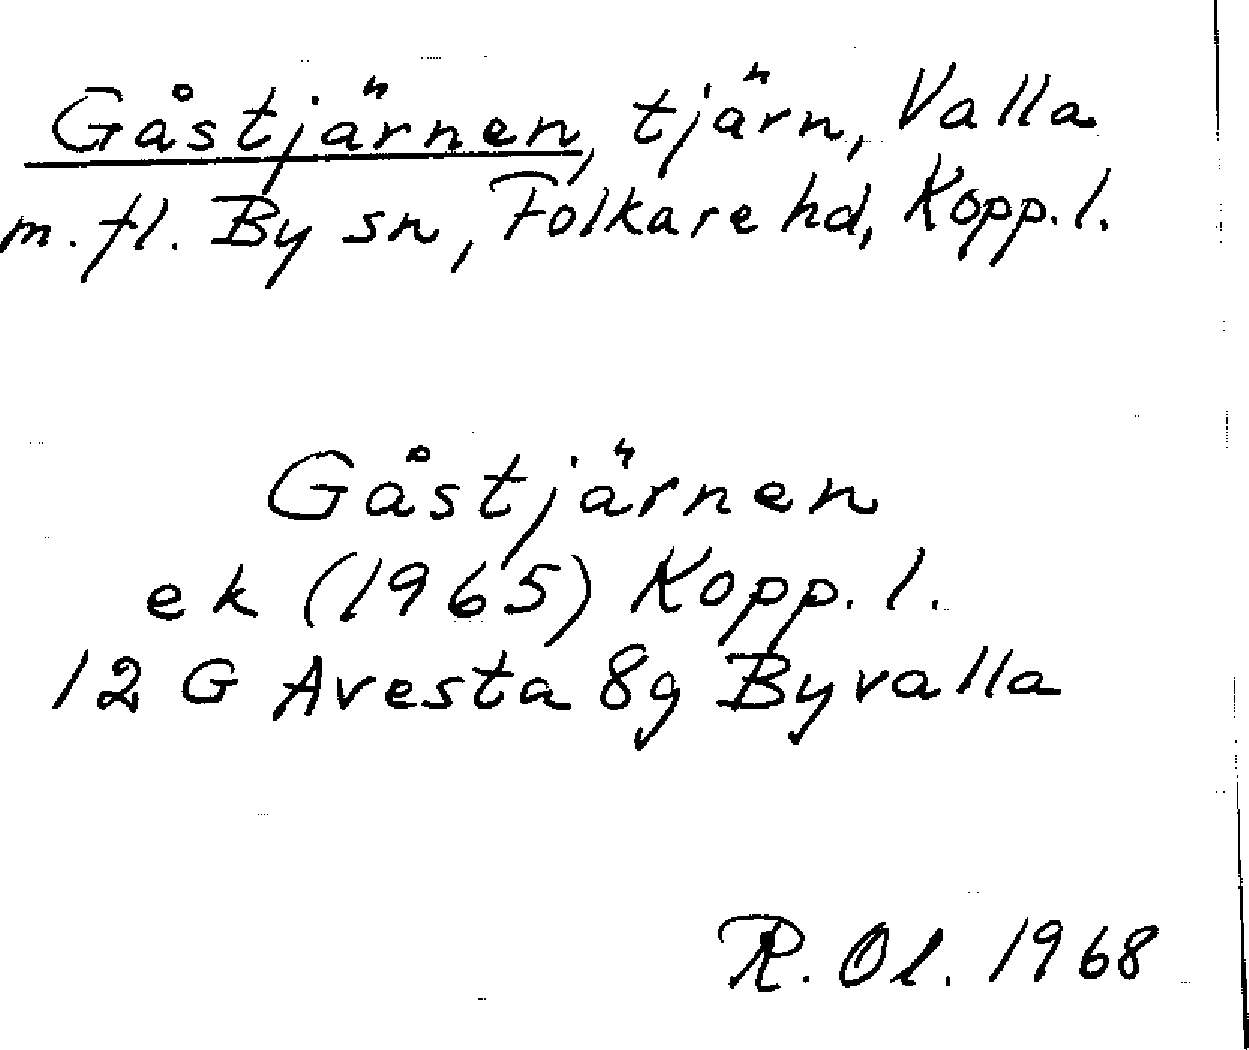 Gåstjärnen, tjärn, Valla
m. fl. By sn, Folkare hd, Kopp. l.
Gåstjärnen
ek (1965) Kopp. l.
12 G Avesta 8g Byvalla
R. Ol. 1968